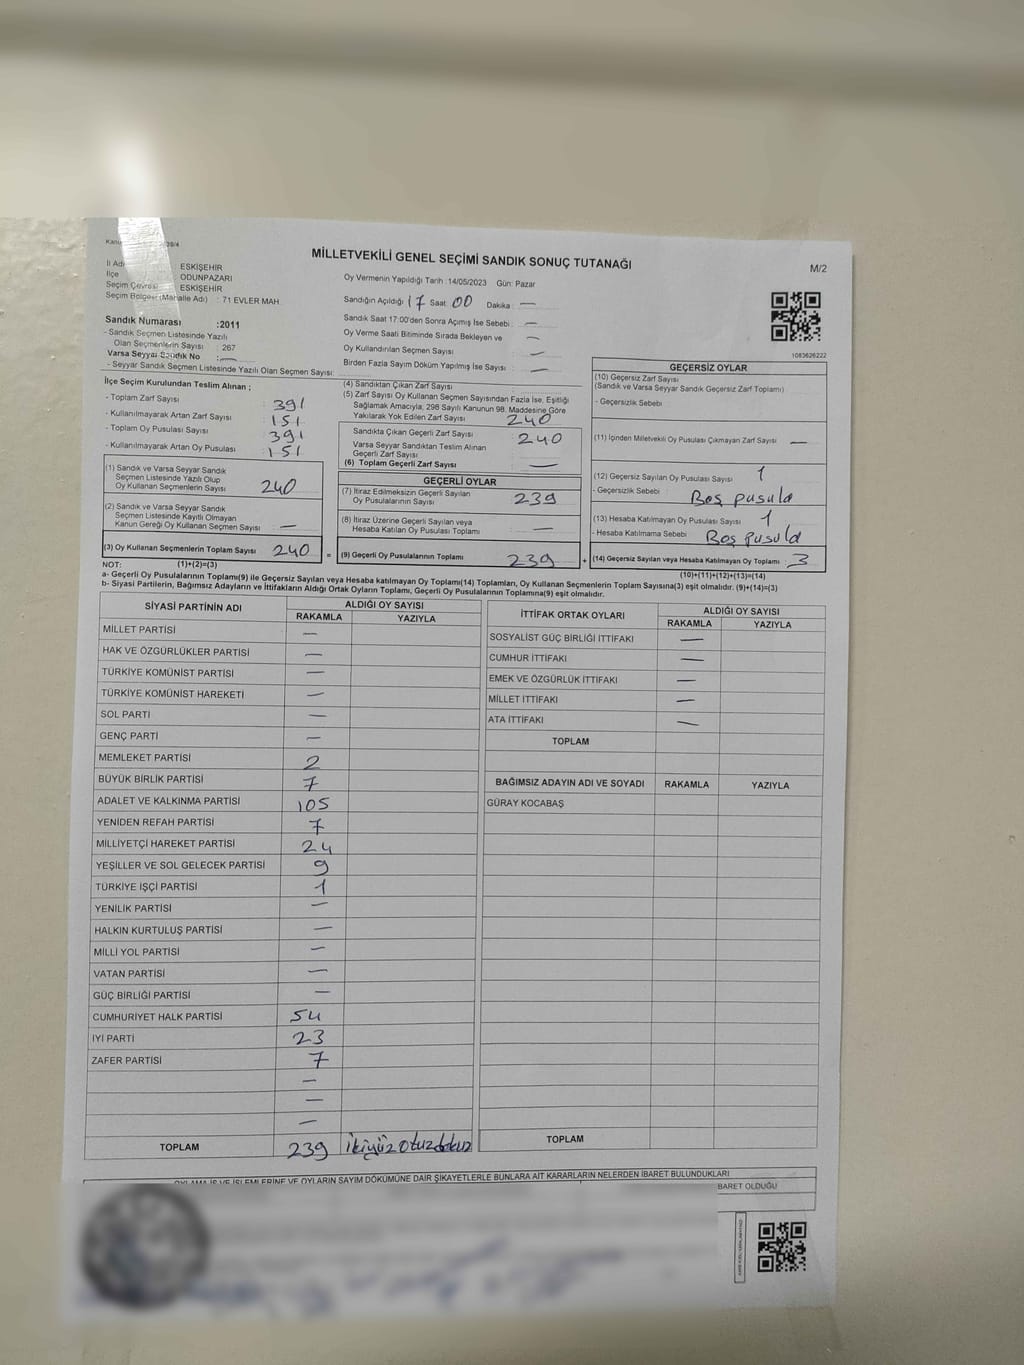 MİLLETVEKİLİ GENEL SEÇİMİ SANDIK SONUÇ TUTANAĞI
M/2
İl Adı ESKİŞEHİR
İlçe ODUNPAZARI
Seçim Çevresi ESKİŞEHİR
Seçim Bölgesi (Mahalle Adı) : 71 EVLER MAH.
Sandık Numarası :2011
- Sandık Seçmen Listesinde Yazılı
Olan Seçmenlerin Sayısı : 267
Varsa Seyyar Sandık No : —
- Seyyar Sandık Seçmen Listesinde Yazılı Olan Seçmen Sayısı:
Oy Vermenin Yapıldığı Tarih :14/05/2023 Gün: Pazar
Sandığın Açıldığı 17 Saat 00 Dakika : —
Sandık Saat 17:00'den Sonra Açımış İse Sebebi : —
Oy Verme Saati Bitiminde Sırada Bekleyen ve —
Oy Kullandırılan Seçmen Sayısı : —
Birden Fazla Sayım Döküm Yapılmış İse Sayısı : —
1083626222
İlçe Seçim Kurulundan Teslim Alınan ;
- Toplam Zarf Sayısı : 391
- Kullanılmayarak Artan Zarf Sayısı : 151
- Toplam Oy Pusulası Sayısı : 391
- Kullanılmayarak Artan Oy Pusulası : 151
(1) Sandık ve Varsa Seyyar Sandık
Seçmen Listesinde Yazılı Olup
Oy Kullanan Seçmenlerin Sayısı 240
(2) Sandık ve Varsa Seyyar Sandık
Seçmen Listesinde Kayıtlı Olmayan
Kanun Gereği Oy Kullanan Seçmen Sayısı —
(3) Oy Kullanan Seçmenlerin Toplam Sayısı 240 =
(4) Sandıktan Çıkan Zarf Sayısı
(5) Zarf Sayısı Oy Kullanan Seçmen Sayısından Fazla İse, Eşitliği
Sağlamak Amacıyla, 298 Sayılı Kanunun 98. Maddesine Göre
Yakılarak Yok Edilen Zarf Sayısı 240
Sandıkta Çıkan Geçerli Zarf Sayısı 240
Varsa Seyyar Sandıktan Teslim Alınan
Geçerli Zarf Sayısı
(6) Toplam Geçerli Zarf Sayısı —
GEÇERLİ OYLAR
(7) İtiraz Edilmeksizin Geçerli Sayılan
Oy Pusulalarının Sayısı 239
(8) İtiraz Üzerine Geçerli Sayılan veya
Hesaba Katılan Oy Pusulası Toplamı —
(9) Geçerli Oy Pusulalarının Toplamı 239 +
GEÇERSİZ OYLAR
(10) Geçersiz Zarf Sayısı
(Sandık ve Varsa Seyyar Sandık Geçersiz Zarf Toplamı)
- Geçersizlik Sebebi
(11) İçinden Milletvekili Oy Pusulası Çıkmayan Zarf Sayısı —
(12) Geçersiz Sayılan Oy Pusulası Sayısı 1
- Geçersizlik Sebebi Boş pusula
(13) Hesaba Katılmayan Oy Pusulası Sayısı 1
- Hesaba Katılmama Sebebi Boş pusula
(14) Geçersiz Sayılan veya Hesaba Katılmayan Oy Toplamı 3
NOT: (1)+(2)=(3)
(10)+(11)+(12)+(13)=(14)
a- Geçerli Oy Pusulalarının Toplamı(9) ile Geçersiz Sayılan veya Hesaba katılmayan Oy Toplamı(14) Toplamları, Oy Kullanan Seçmenlerin Toplam Sayısına(3) eşit olmalıdır. (9)+(14)=(3)
b- Siyasi Partilerin, Bağımsız Adayların ve İttifakların Aldığı Ortak Oyların Toplamı, Geçerli Oy Pusulalarının Toplamına(9) eşit olmalıdır.
SİYASİ PARTİNİN ADI ALDIĞI OY SAYISI
RAKAMLA YAZIYLA
MİLLET PARTİSİ —
HAK VE ÖZGÜRLÜKLER PARTİSİ —
TÜRKİYE KOMÜNİST PARTİSİ —
TÜRKİYE KOMÜNİST HAREKETİ —
SOL PARTİ —
GENÇ PARTİ —
MEMLEKET PARTİSİ 2
BÜYÜK BİRLİK PARTİSİ 7
ADALET VE KALKINMA PARTİSİ 105
YENİDEN REFAH PARTİSİ 7
MİLLİYETÇİ HAREKET PARTİSİ 24
YEŞİLLER VE SOL GELECEK PARTİSİ 9
TÜRKİYE İŞÇİ PARTİSİ 1
YENİLİK PARTİSİ —
HALKIN KURTULUŞ PARTİSİ —
MİLLİ YOL PARTİSİ —
VATAN PARTİSİ —
GÜÇ BİRLİĞİ PARTİSİ —
CUMHURİYET HALK PARTİSİ 54
İYİ PARTİ 23
ZAFER PARTİSİ 7
—
—
—
TOPLAM 239 ikiyüzotuzdokuz
İTTİFAK ORTAK OYLARI ALDIĞI OY SAYISI
RAKAMLA YAZIYLA
SOSYALİST GÜÇ BİRLİĞİ İTTİFAKI —
CUMHUR İTTİFAKI —
EMEK VE ÖZGÜRLÜK İTTİFAKI —
MİLLET İTTİFAKI —
ATA İTTİFAKI —
TOPLAM
BAĞIMSIZ ADAYIN ADI VE SOYADI RAKAMLA YAZIYLA
GÜRAY KOCABAŞ
TOPLAM
OYLAMA İŞ VE İŞLEMLERİNE VE OYLARIN SAYIM DÖKÜMÜNE DAİR ŞİKAYETLERLE BUNLARA AİT KARARLARIN NELERDEN İBARET BULUNDUKLARI
BARET OLDUĞU